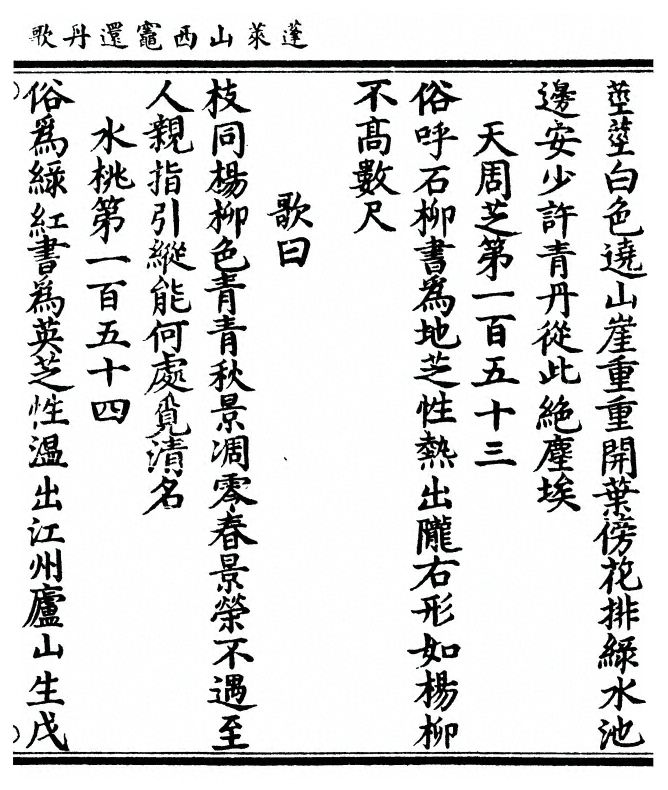 蓬萊山西竈還丹歌
莖莖白色遶山崖重重開葉傍花排綠水池
邊安少許青丹從此絕塵埃
天周芝第一百五十三
俗呼石柳書為地芝性熱出隴右形如楊柳
不高數尺
歌曰
枝同楊柳色青青秋景凋零春景榮不遇至
人親指引縱能何處覓清名
水桃第一百五十四
俗為綠紅書為英芝性溫出江州廬山生戊